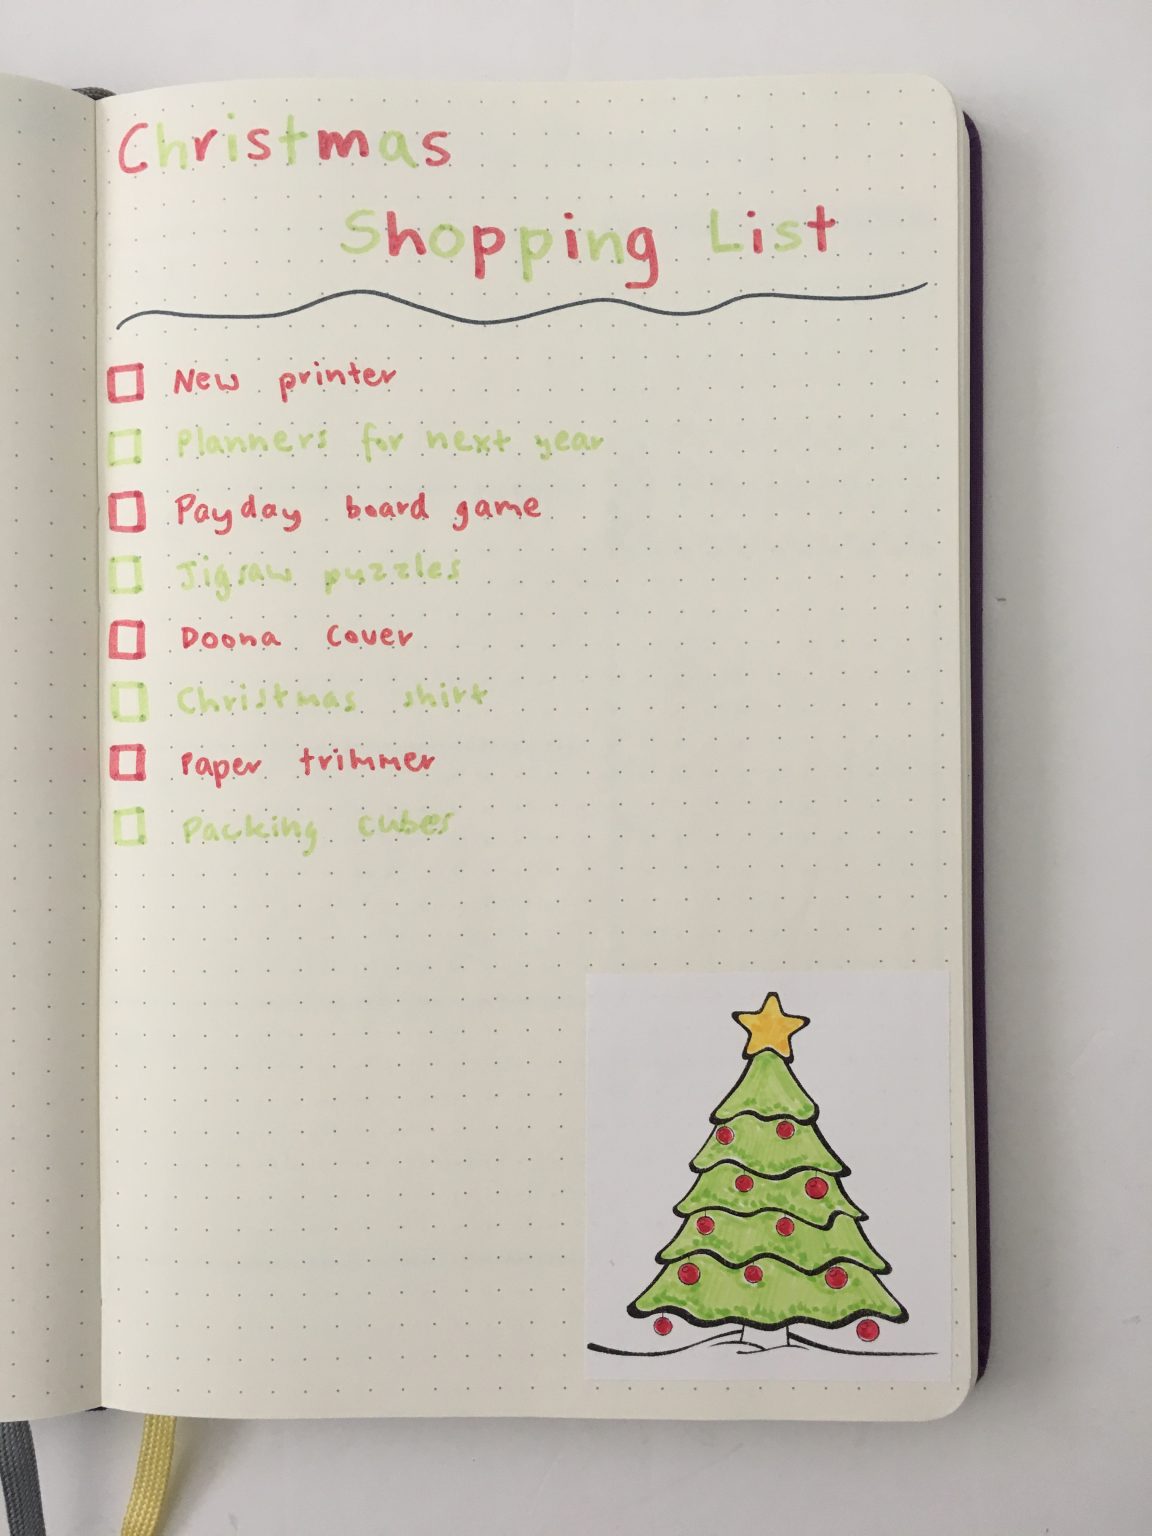 Christmas
Shopping List
New printer
Planners for next year
Payday board game
Jigsaw puzzles
Doona cover
Christmas shirt
Paper trimmer
Packing cubes